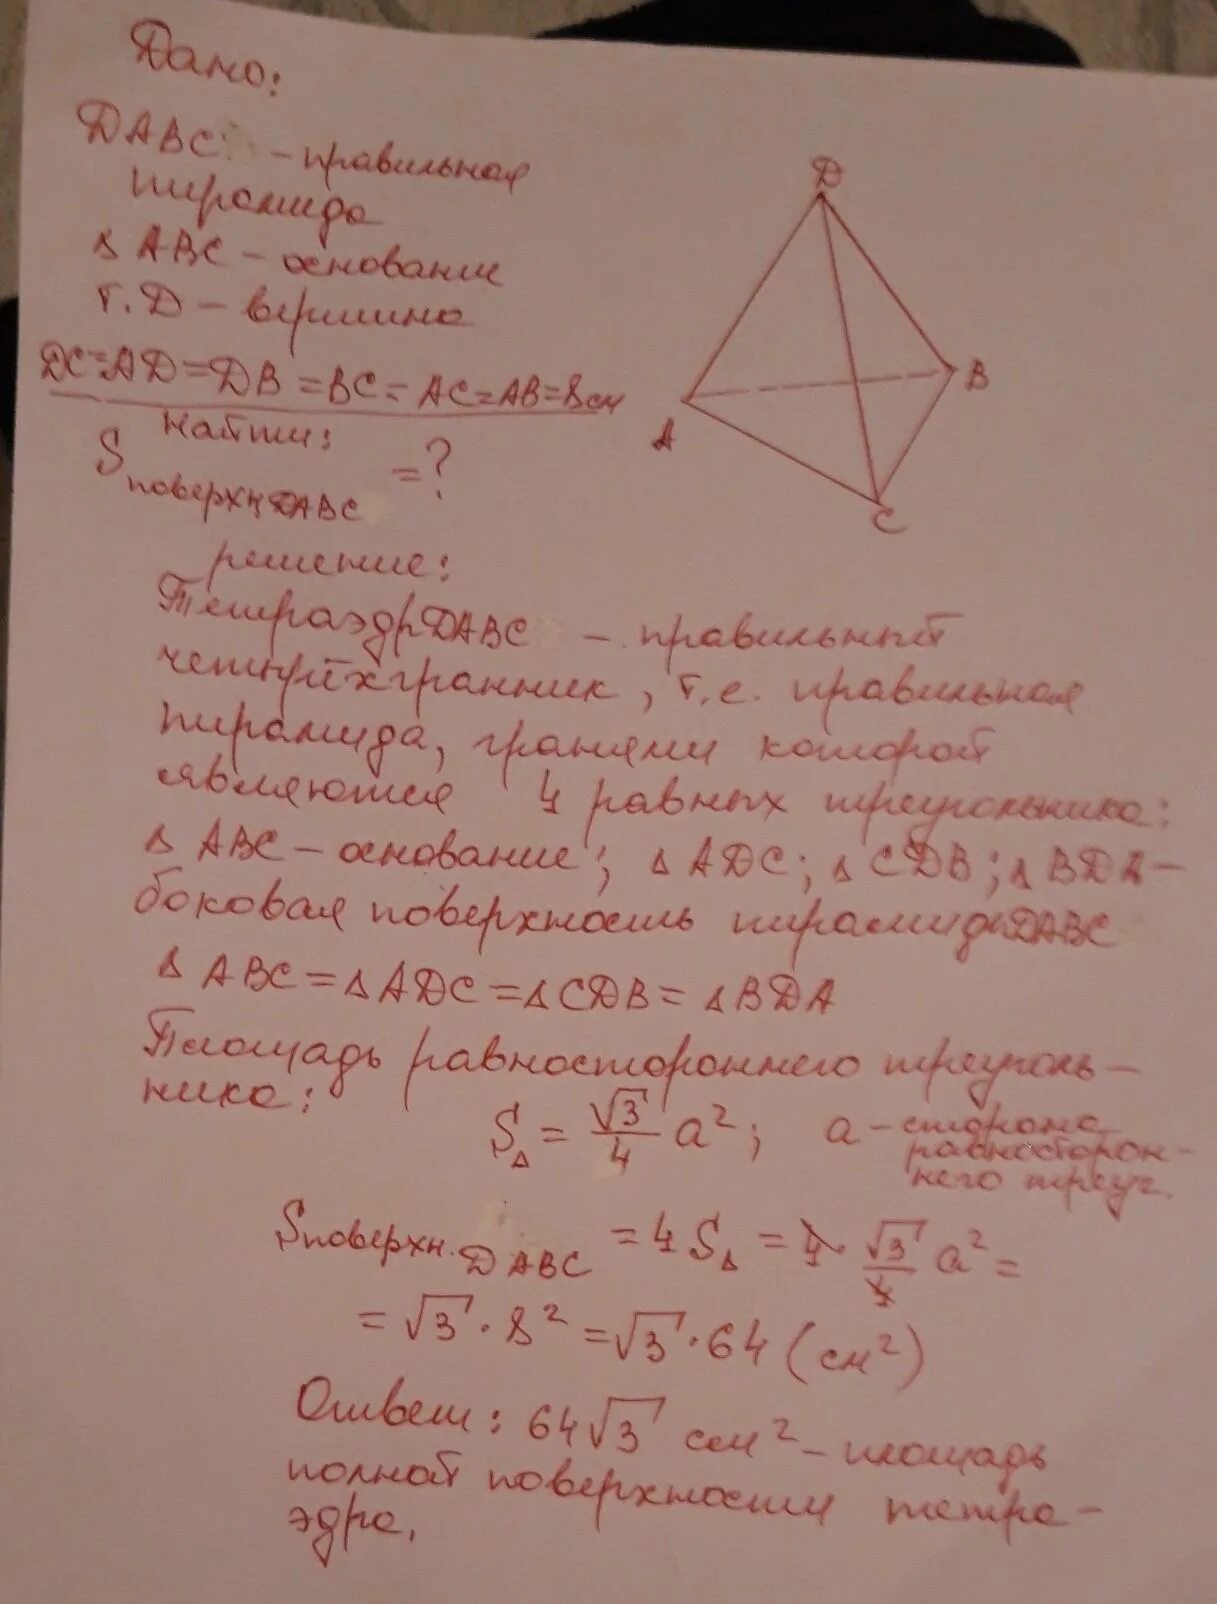 Дано:
DABC - правильная
пирамида
Δ ABC - основание
т. D - вершина
DC=AD=DB=BC=AC=AB=8см
Найти:
S поверхн DABC =?
решение:
Тетраэдр DABC - правильный
четырёхгранник, т.е. правильная
пирамида, гранями которой
являются 4 равных треугольника:
Δ ABC - основание; Δ ADC; Δ CDB; Δ BDA -
боковая поверхность пирамиды DABC
Δ ABC = Δ ADC = Δ CDB = Δ BDA
Площадь равностороннего треуголь-
ника:
S_Δ = √3/4 a²; a - сторона
равносторон-
него треуг.
S поверхн. DABC = 4 S_Δ = 4 · √3/4 a² =
= √3 · 8² = √3 · 64 (см²)
Ответ: 64√3 см² - площадь
полной поверхности тетра-
эдра.
D
A
B
C